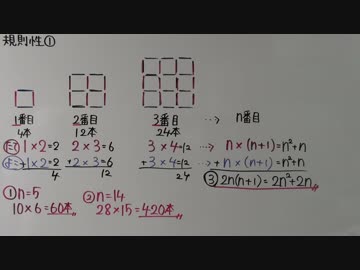 規則性①
1番目 2番目 3番目 …> n番目
4本 12本 24本
たて 1×2=2 2×3=6 3×4=12 …> n×(n+1)=n²+n
よこ +1×2=2 +2×3=6 +3×4=12 …> +n×(n+1)=n²+n
4 12 24 ③ 2n(n+1)=2n²+2n
① n=5 ② n=14
10×6=60本 28×15=420本